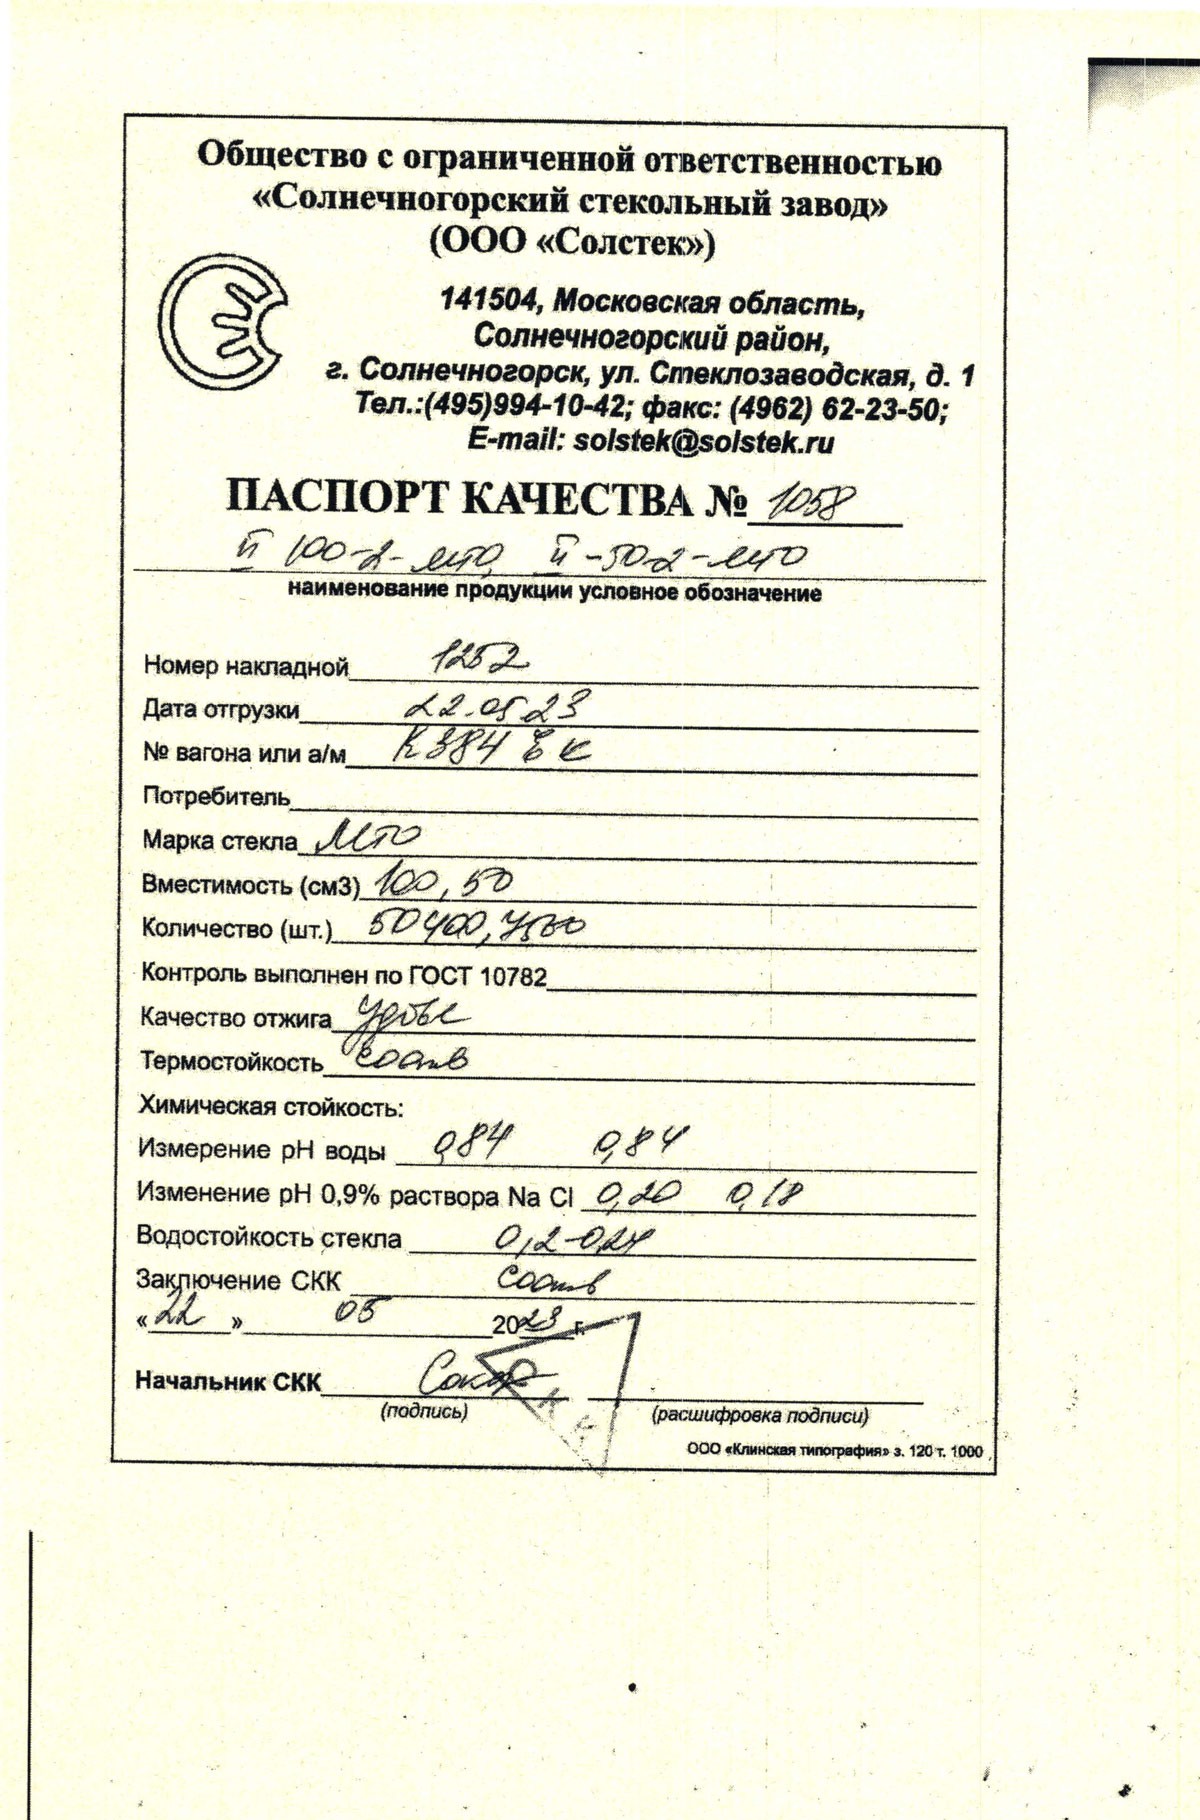 Общество с ограниченной ответственностью
«Солнечногорский стекольный завод»
(ООО «Солстек»)
141504, Московская область,
Солнечногорский район,
г. Солнечногорск, ул. Стеклозаводская, д. 1
Тел.:(495)994-10-42; факс: (4962) 62-23-50;
E-mail: solstek@solstek.ru
ПАСПОРТ КАЧЕСТВА № 1058
II 100-2-МТО, II-50-2-МТО
наименование продукции условное обозначение
Номер накладной 1252
Дата отгрузки 22.05.23
№ вагона или а/м К384 ЕК
Потребитель
Марка стекла МТО
Вместимость (см3) 100, 50
Количество (шт.) 50400,
Контроль выполнен по ГОСТ 10782
Качество отжига
Термостойкость соотв
Химическая стойкость:
Измерение pH воды 0,84 0,84
Изменение pH 0,9% раствора Na Cl 0,20 0,18
Водостойкость стекла 0,2-0,24
Заключение СКК соотв
«22» 05 2023 г.
Начальник СКК
(подпись) (расшифровка подписи)
ООО «Клинская типография» з. 120 т. 1000